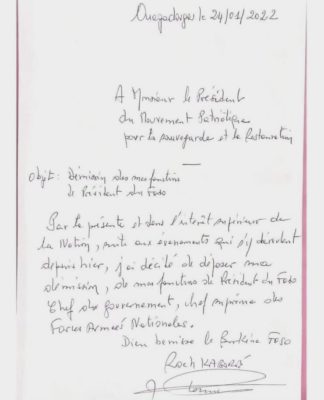 Ouagadougou le 24/01/2022
A Monsieur le Président
du Mouvement Patriotique
pour la sauvegarde et la Restauration
Objet: Démission de mes fonctions
de Président du Faso
Par la présente et dans l'intérêt supérieur de
la Nation, suite aux évènements qui s'y déroulent
depuis hier, j'ai décidé de déposer ma
démission, de mes fonctions de Président du Faso
Chef du Gouvernement, chef suprême des
Forces Armées Nationales.
Dieu bénisse le Burkina Faso
Roch KABORÉ